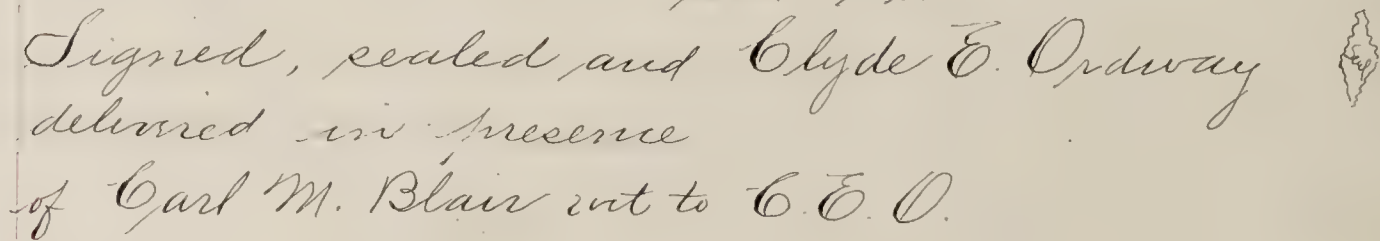 Signed, sealed and Clyde E. Ordway Seal
delivered in presence
of Carl M. Blair wit to C.E.O.